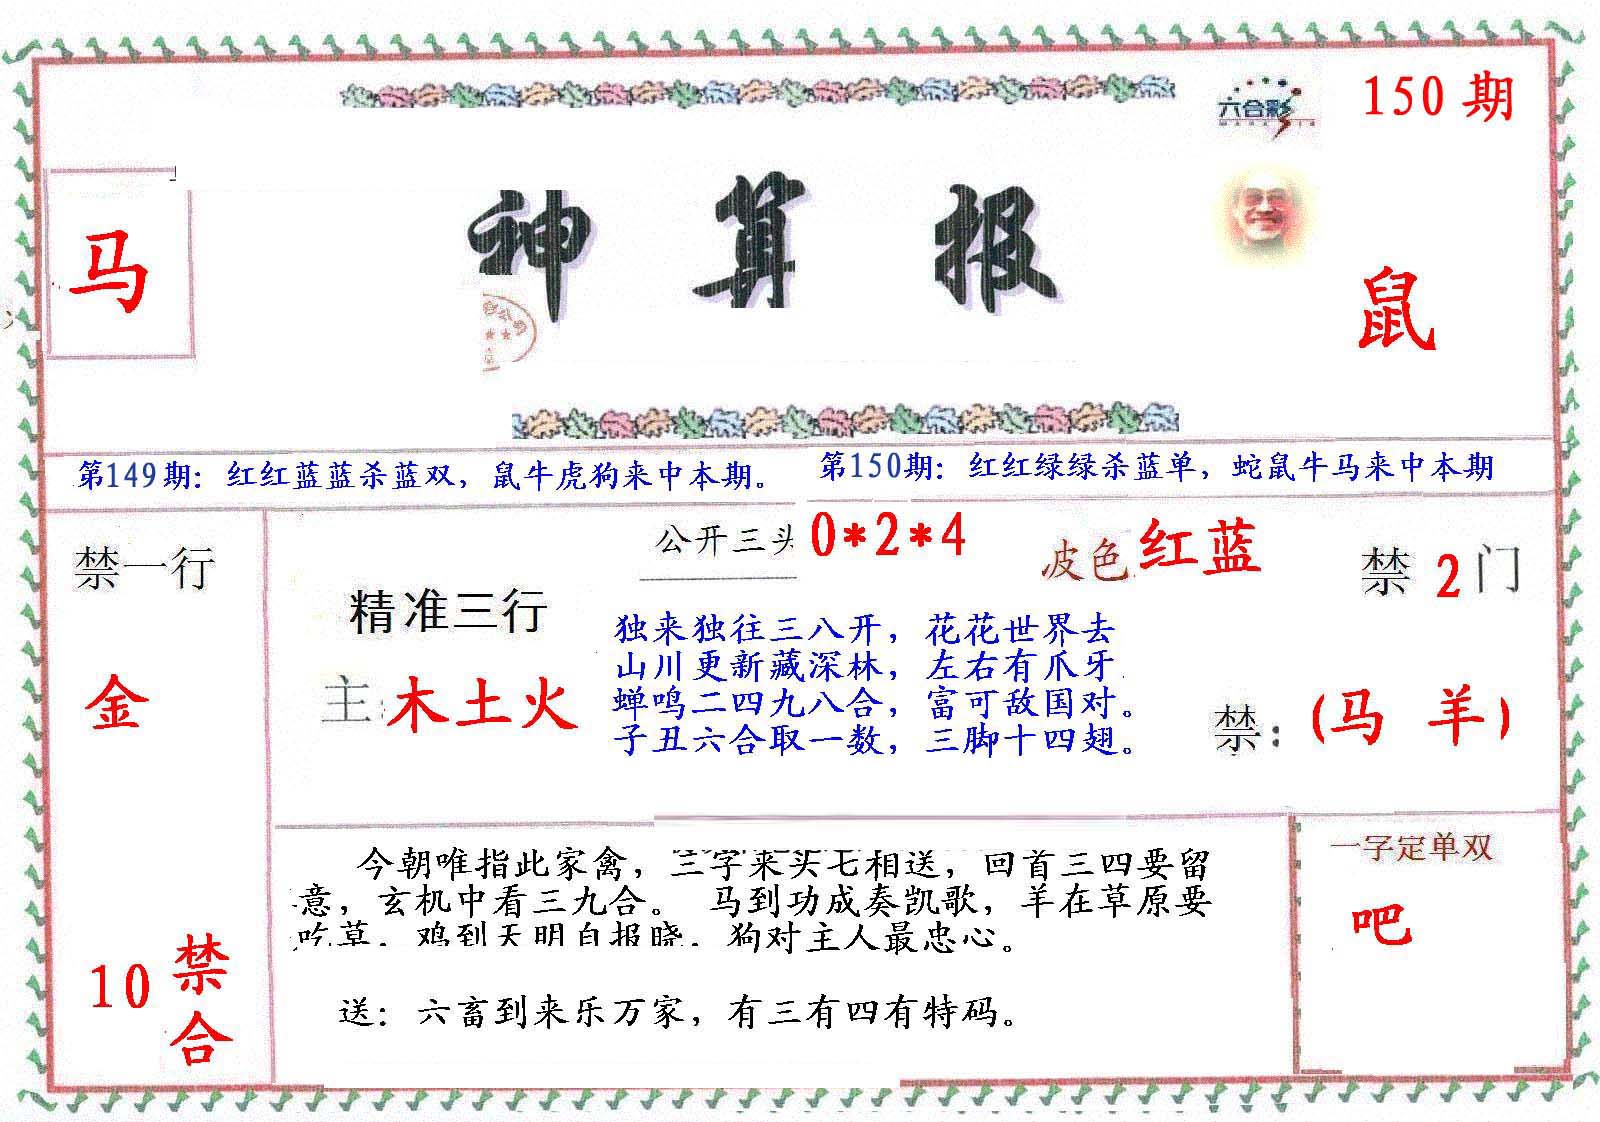 六合彩
150 期
神算报
马
鼠
第149期：红红蓝蓝杀蓝双，鼠牛虎狗来中本期。
第150期：红红绿绿杀蓝单，蛇鼠牛马来中本期
禁一行
金
10 禁合
公开三头 0*2*4
皮色 红蓝
禁 2 门
精准三行
主：木土火
独来独往三八开，花花世界去
山川更新藏深林，左右有爪牙
蝉鸣二四九八合，富可敌国对。
子丑六合取一数，三脚十四翅。
禁：(马 羊)
今朝唯指此家禽，三字来头七相送，回首三四要留
意，玄机中看三九合。 马到功成奏凯歌，羊在草原要
吃草，鸡到天明自报晓，狗对主人最忠心。
送：六畜到来乐万家，有三有四有特码。
一字定单双
吧